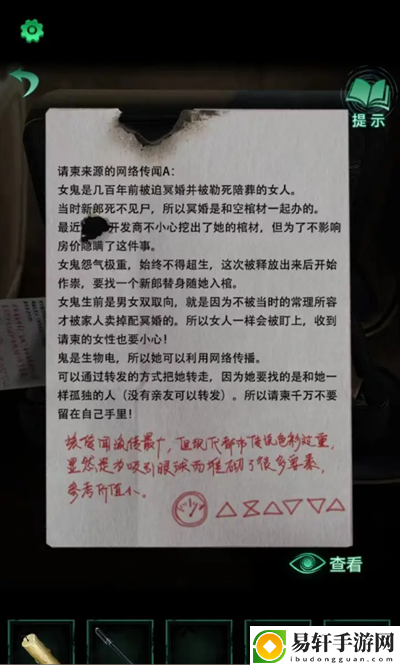 提示
请柬来源的网络传闻A：
女鬼是几百年前被迫冥婚并被勒死陪葬的女人。
当时新郎死不见尸，所以冥婚是和空棺材一起办的。
最近 开发商不小心挖出了她的棺材，但为了不影响
房价隐瞒了这件事。
女鬼怨气极重，始终不得超生，这次被释放出来后开始
作祟，要找一个新郎替身随她入棺。
女鬼生前是男女双取向，就是因为不被当时的常理所容
才被家人卖掉配冥婚的。所以女人一样会被盯上，收到
请柬的女性也要小心！
鬼是生物电，所以她可以利用网络传播。
可以通过转发的方式把她转走，因为她要找的是和她一
样孤独的人（没有亲友可以转发）。所以请柬千万不要
留在自己手里！
该传闻流传最广，但现代都市传说色彩过重，
显然是为吸引眼球而堆砌了很多要素，
参考价值小。
查看
易轩手游网
ibudongguan.com